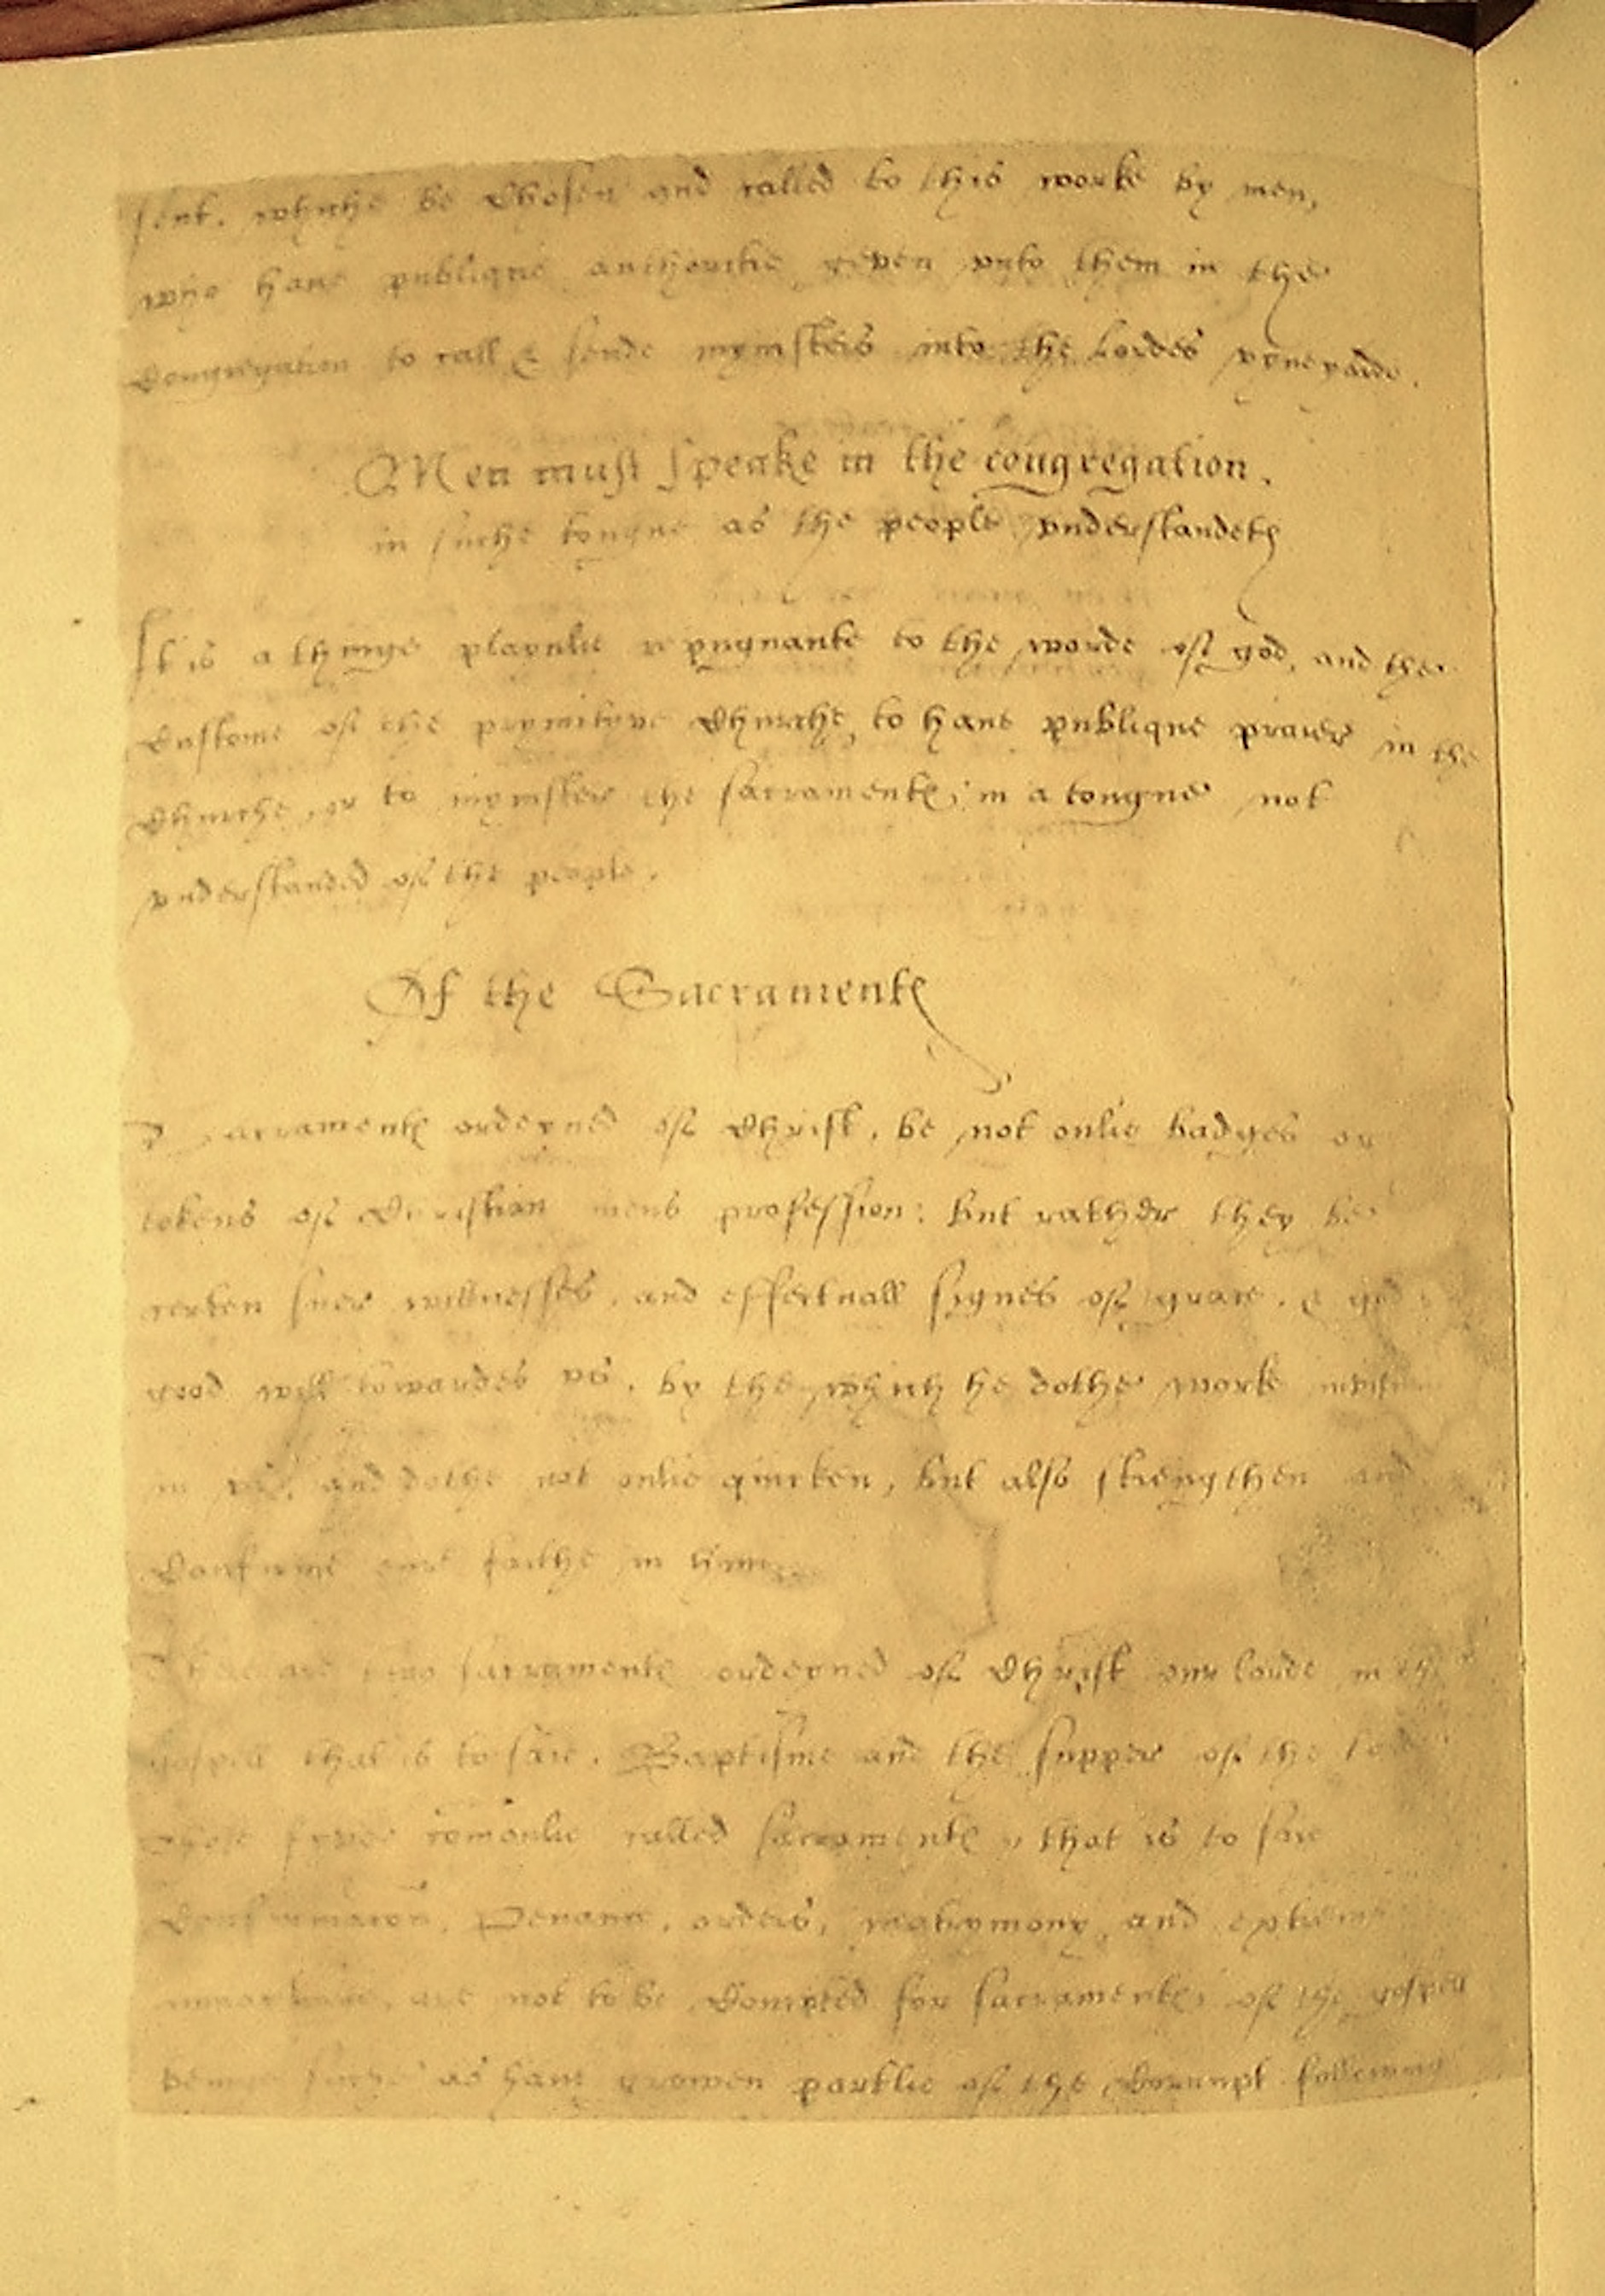 sent. whiche be Chosen and called to this worke by men,
who haue publique authoritie geven vnto them in the
Congregation to call & sende mynisters into the Lordes vyneyarde.
Men must speake in the congregation.
in suche tongue as the people vnderstandeth
It is a thinge playnlie repugnante to the worde of god, and the
Custome of the prymityve Churche, to haue publique praier in the
Churche, or to mynister the sacramentes, in a tongue not
vnderstanded of the people.
Of the Sacramentes
Sacramentes ordeyned of Christ, be not onlie badges or
tokens of Christian mens profession: but rather they be
certen suer wittnesses, and effectuall signes of grace. & god
good will towardes vs, by the which he dothe worke
in vs, and dothe not onlie quicken, but also strengthen and
Confirme our faithe in him
There are two sacramentes ordeyned of Christ our lorde in the
gospell that is to saie. Baptisme and the supper of the
Those fyve comonlie called sacramentes, that is to saie
Confirmacion, Penance, orders, matrymony, and extreme
are not to be Compted for sacramentes of the gospell
beinge suche as haue growen partlie of the Corrupt followinge